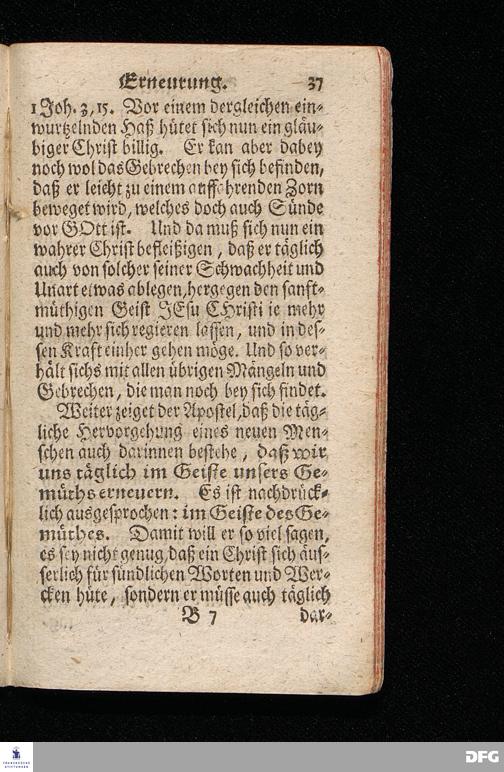 Erneurung. 37
1 Joh. 3, 15. Vor einem dergleichen ein-
wurtzelnden Haß hütet sich nun ein gläu-
biger Christ billig. Er kan aber dabey
noch wol das Gebrechen bey sich befinden,
daß er leicht zu einem auffahrenden Zorn
beweget wird, welches doch auch Sünde
vor GOtt ist. Und da muß sich nun ein
wahrer Christ befleißigen, daß er täglich
auch von solcher seiner Schwachheit und
Unart etwas ablegen, hergegen den sanft-
müthigen Geist JEsu CHristi ie mehr
und mehr sich regieren lassen, und in des-
sen Kraft einher gehen möge. Und so ver-
hält sichs mit allen übrigen Mängeln und
Gebrechen, die man noch bey sich findet.
Weiter zeiget der Apostel, daß die täg-
liche Hervorgehung eines neuen Men-
schen auch darinnen bestehe, daß wir
uns täglich im Geiste unsers Ge-
müths erneuern. Es ist nachdrück-
lich ausgesprochen: im Geiste des Ge-
müthes. Damit will er so viel sagen,
es sey nicht genug, daß ein Christ sich äus-
serlich für sündlichen Worten und Wer-
cken hüte, sondern er müsse auch täglich
B 7 dar-
FRANCKESCHE
STIFTUNGEN
DFG